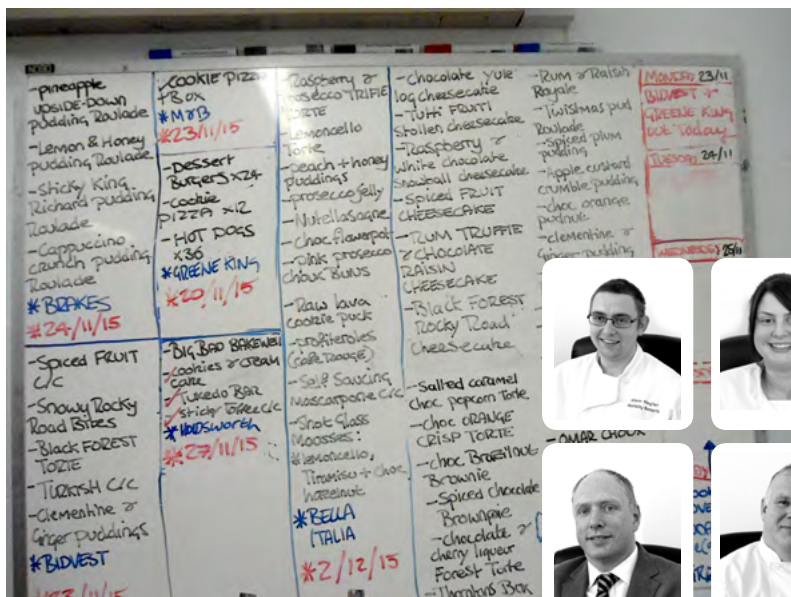 NOBO
-pineapple
upside-down
pudding Roulade
-Lemon & Honey
pudding Roulade
-Sticky King
Richard pudding
Roulade
-Cappuccino
crunch pudding
Roulade
*BRAKES
*24/11/15
-Spiced FRUIT
C/C
-Snowy Rocky
Road Bites
-Black FOREST
TORTE
-TURKISH C/C
-Clementine &
Ginger puddings
*BIDVEST
COOKIE PIZZA
+ Box
*M&B
*23/11/15
-Dessert
Burgers x24
-cookie
PIZZA x12
-HOT DOGS
x36
*GREENE KING
*20/11/15
-BIG BAD BAKEWELL
cookies & cream
cake
Tuxedo BAR
Sticky Toffee C/C
*HOLDSWORTH
*27/11/15
-Raspberry &
prosecco TRIFLE
TORTE
-Lemoncello
Torte
-peach + honey
puddings
-prosecco jelly
-Nutellasagne
-choc flowerpot
-Pink prosecco
choux BUNS
-Raw lava
cookie puck
-profiteroles
(CAFE ROUGE)
-Self Saucing
mascarpone C/C
-Shot Glass
Moosses:
*lemoncello,
Tiramisu + choc
hazelnut
*BELLA
ITALIA
*2/12/15
-chocolate yule
log cheesecake
-TUTTI FRUTI
Stollen cheesecake
-Raspberry &
white chocolate
Snowball cheesecake
-Spiced FRUIT
CHEESECAKE
-RUM TRUFFLE
& CHOCOLATE
RAISIN
CHEESECAKE
-Black FOREST
Rocky Road
Cheesecake
-Salted caramel
choc popcorn Torte
-choc ORANGE
CRISP TORTE
-choc Brazilnut
Brownie
-Spiced chocolate
Brownie
-chocolate &
cherry liqueur
Forest Torte
-Thorntons Box
-Rum & Raisin
Royale
-Twistmas pud
Roulade
-Spiced plum
pudding
-Apple custard
crumble pudding
-choc orange
pudnut
-clementine &
Ginger pudding
-OMAR CHOUX
MONDAY 23/11
BIDVEST &
GREENE KING
OUT Today
TUESDAY 24/11
WEDNESDAY 25/11